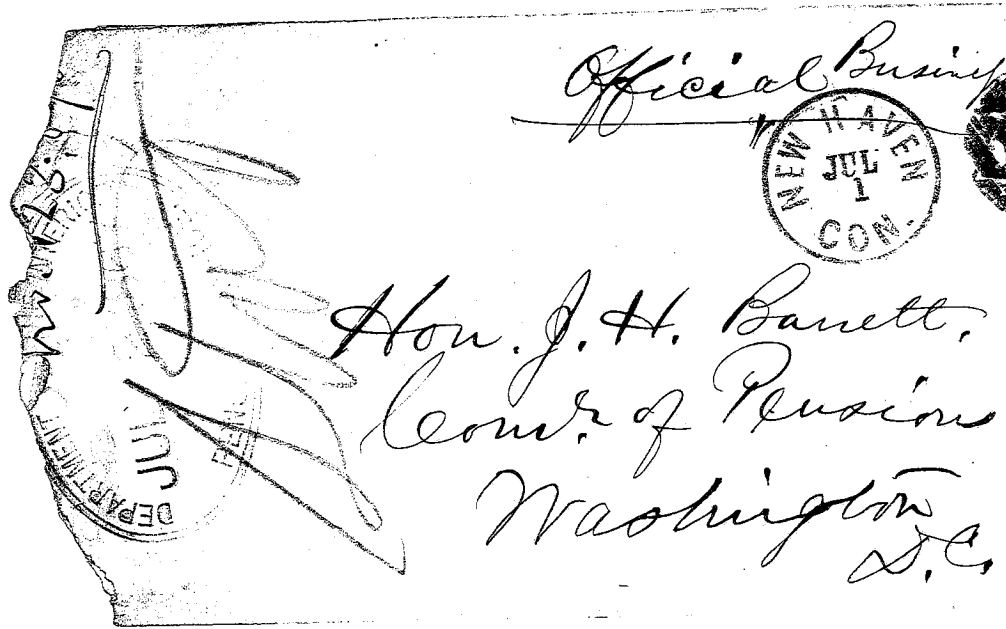 Official Business
NEW HAVEN
JUL
1
CON.
Hon. J. H. Barrett.
Comr. of Pensions
Washington
D.C.
DEPARTMENT
JUL